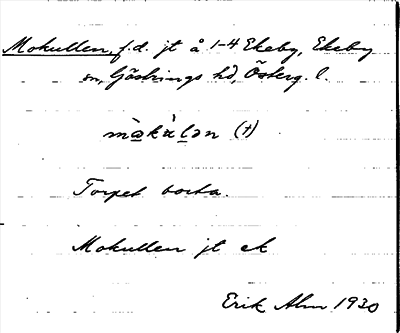 Mokullen, f.d. jt å 1-4 Ekeby, Ekeby
sn, Göstrings hd, Österg. l.
mòkùlən (†)
Torpet borta.
Mokullen jt ek
Erik Alm 1930